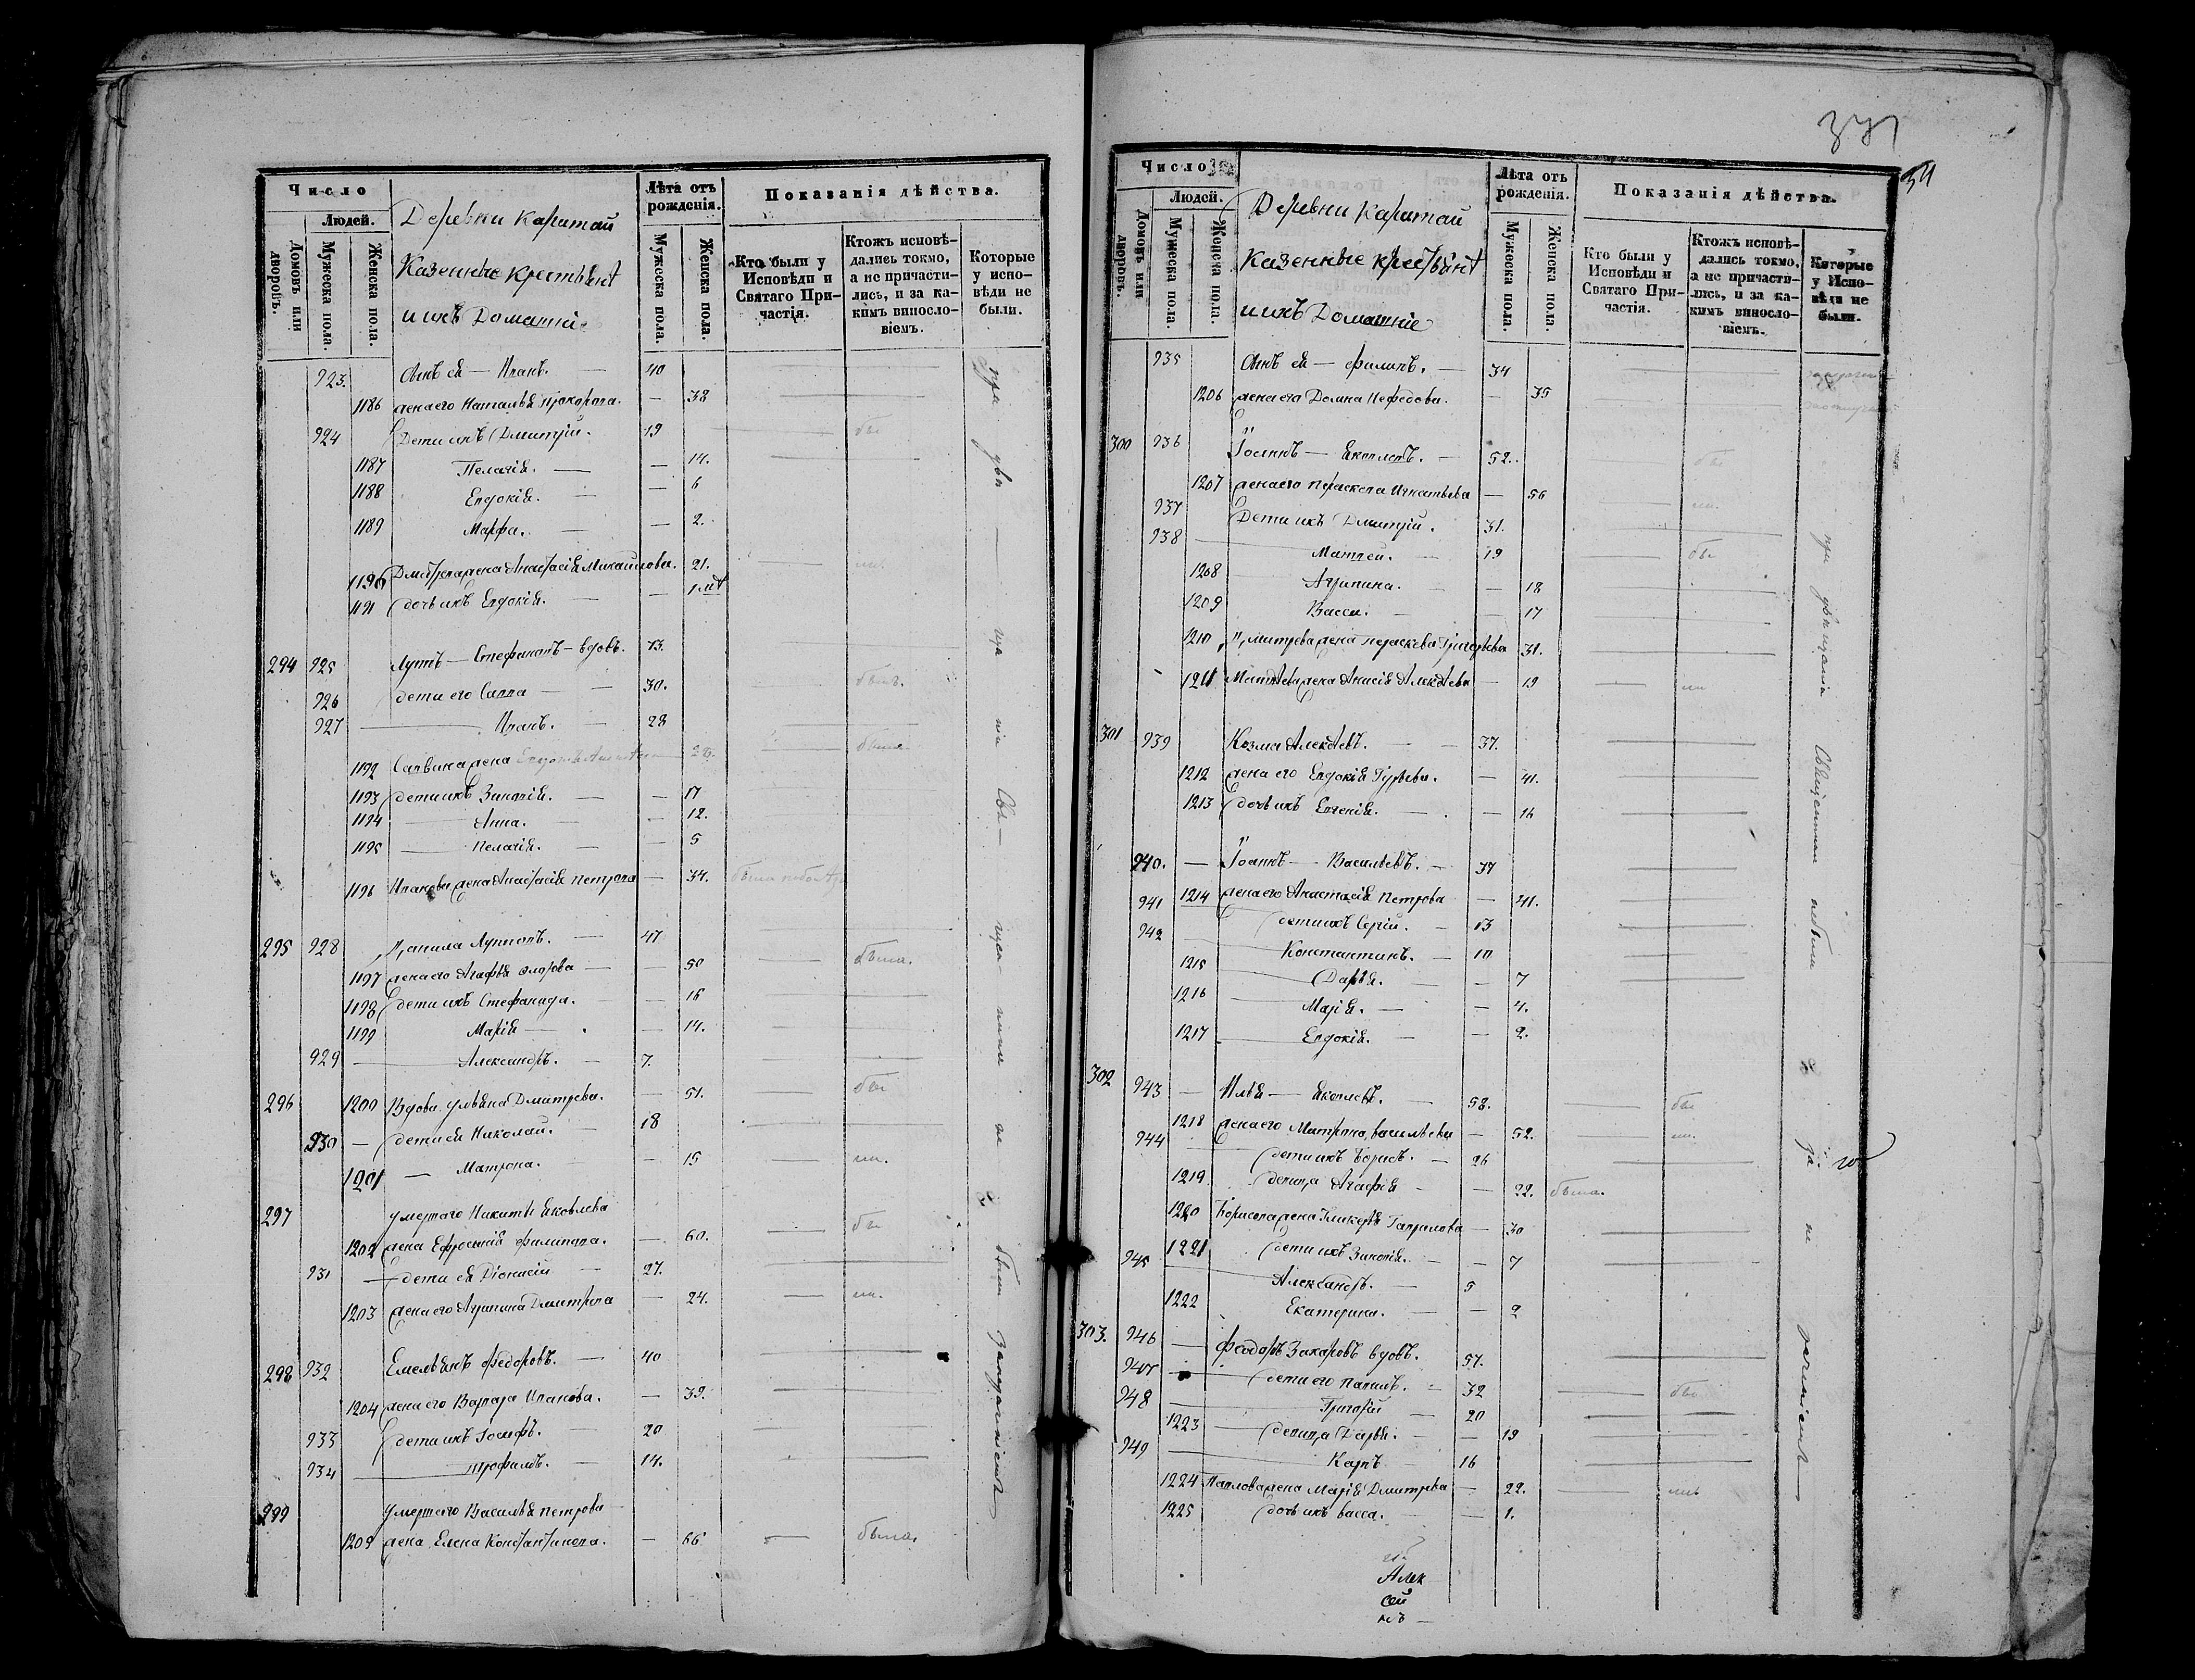 Число
Людей.
Домовъ или дворовъ.
Мужеска пола.
Женска пола.
Деревни Каратай
Казенные крестьяне
и ихъ Домашніе
Лѣта отъ рожденія.
Мужеска пола.
Женска пола.
Показанія дѣйства.
Кто были у Исповѣди и Святаго Причастія.
Ктожъ исповѣдались токмо, а не причастились, и за какимъ винословіемъ.
Которые у исповѣди не были.
923. Сынъ ея — Иванъ. — 40
1186 жена его Наталья Прохорова. — 38
924 Дети ихъ Дмитрій. 19 бы
1187 Пелагія. — 14.
1188 Евдокія. — 6
1189 Марфа. — 2.
1190 Дмитрева жена Анастасія Михайлова. 21.
1191 дочь ихъ Евдокія. — 1
294 925 Луппъ — Стефановъ — вдовъ. 73.
926 дети его Савва — 30.
927 — Иванъ. — 28
1192 Саввина жена
1193 дети ихъ Зиновія. — 17
1194 — Анна. — 12.
1195 — Пелагія. — 5
1196 Иванова жена Анастасія Петрова — 34. была
295 928 Данила Лупповъ. — 47
1197 жена его Агафья — 50 была.
1198 дети ихъ Стефанида. — 16
1199 Марія — 14.
929 — Александръ. — 7.
296 1200 Вдова Ульяна Дмитрева. — 51. бы
930 — дети ея Николай. — 18
1201 — Матрона. — 15
297 умершаго Никиты Яковлева
1202 жена Ефросинія Филипова. — 60. бы
931 — дети ея Діонисій — 27.
1203 жена его Агрипина Дмитрева — 24.
298 932 Емельянъ Федоровъ. — 40
1204 жена его Варвара Иванова. — 39.
933 дети ихъ Іосифъ. — 20
934 — Трофимъ. — 14.
299 умершаго Василья Петрова
1205 жена Елена Константинова. — 66 была.
341
Число
Людей.
Домовъ или дворовъ.
Мужеска пола.
Женска пола.
Деревни Каратай
Казенные крестьяне
и ихъ Домашніе
Лѣта отъ рожденія.
Мужеска пола.
Женска пола.
Показанія дѣйства.
Кто были у Исповѣди и Святаго Причастія.
Ктожъ исповѣдались токмо, а не причастились, и за какимъ винословіемъ.
Которые у Исповѣди не были.
935 Сынъ ея — Филипъ. — 34
1206 жена его Домна Нефедова. — 35
300 936 Іоаннъ — Яковлевъ. — 52. бы
1207 жена его Параскева Игнатьева — 56
937 Дети ихъ Дмитрій. 31.
938 — Матвей. — 19 бы
1208 Агрипина. — 18
1209 Васса. — 17
1210 Дмитрева жена Параскева Григорьева 31.
1211 Матвеева жена Анисія Алексеева — 19
301 939 Козма Алексеевъ. — 37.
1212 жена его Евдокія Гурьева. — 41.
1213 дочь ихъ Евгенія. — 16
940. — Іоаннъ — Васильевъ. — 37
1214 жена его Анастасія Петрова — 41.
941 дети ихъ Сергій. — 13
942 — Константинъ. — 10
1215 — Дарья. — 7
1216 — Марія. — 4.
1217 — Евдокія. — 2.
302 943 — Илья — Яковлевъ. — 58. бы
1218 жена его Матрона Васильева — 52.
944 дети ихъ Борисъ. — 26
1219 девица Агафія — 22. была.
1220 Борисова жена Гликерья Гаврилова — 30
1221 дети ихъ Зиновія. — 7
945 — Александръ. — 5
1222 Екатерина. — 2
303. 946 — Феодоръ Захаровъ вдовъ. 57.
947 — дети его Павилъ. — 32 бы
948 — Григорій — 20
1223 — девица Дарья. — 19
949 — Карпъ — 16
1224 Павлова жена Марія Дмитрева — 22.
1225 дочь ихъ Васса. — 1.
Алек
сей